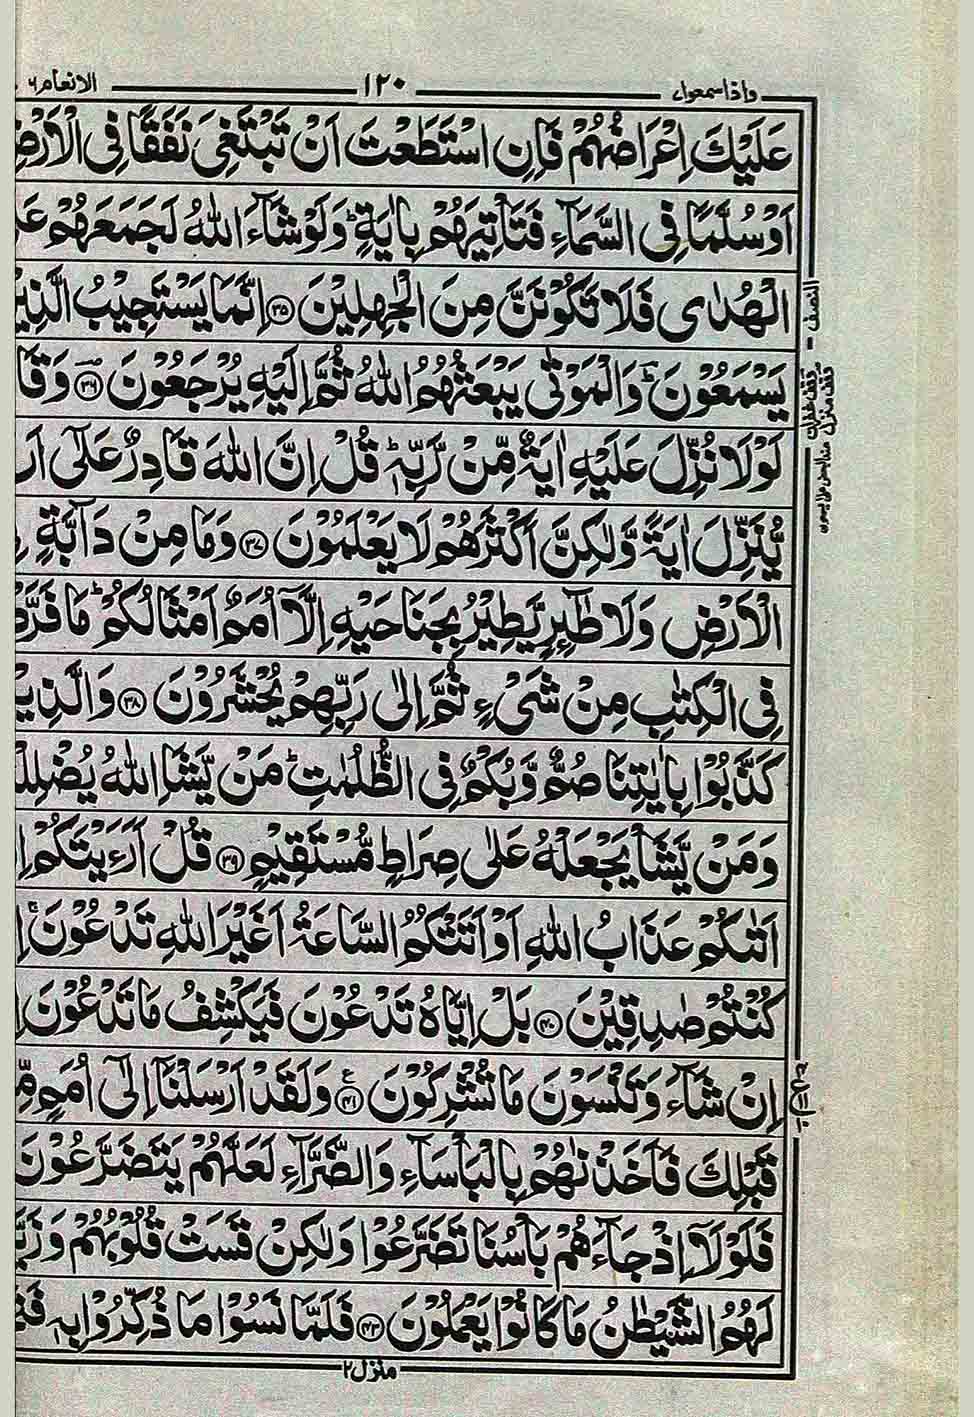 واذاسمعوا ۷ ۱۲۰ الانعام ۶
عَلَيْكَ اِعْرَاضُهُمْ فَاِنِ اسْتَطَعْتَ اَنْ تَبْتَغِیَ نَفَقًا فِی الْاَرْضِ
اَوْ سُلَّمًا فِی السَّمَآءِ فَتَاْتِيَهُمْ بِاٰيَةٍ ؕ وَلَوْ شَآءَ اللّٰهُ لَجَمَعَهُمْ
الْهُدٰی فَلَا تَكُوْنَنَّ مِنَ الْجٰهِلِيْنَ ﴿۳۵﴾ اِنَّمَا يَسْتَجِيْبُ الَّذِيْنَ
يَسْمَعُوْنَ ؕ وَالْمَوْتٰی يَبْعَثُهُمُ اللّٰهُ ثُمَّ اِلَيْهِ يُرْجَعُوْنَ ﴿۳۶﴾ وَقَا
لَوْلَا نُزِّلَ عَلَيْهِ اٰيَةٌ مِّنْ رَّبِّهٖ ؕ قُلْ اِنَّ اللّٰهَ قَادِرٌ عَلٰۤی اَ
يُّنَزِّلَ اٰيَةً وَّلٰكِنَّ اَكْثَرَهُمْ لَا يَعْلَمُوْنَ ﴿۳۷﴾ وَمَا مِنْ دَآبَّةٍ
الْاَرْضِ وَلَا طٰٓئِرٍ يَّطِيْرُ بِجَنَاحَيْهِ اِلَّاۤ اُمَمٌ اَمْثَالُكُمْ ؕ مَا فَرَّ
فِی الْكِتٰبِ مِنْ شَیْءٍ ثُمَّ اِلٰی رَبِّهِمْ يُحْشَرُوْنَ ﴿۳۸﴾ وَالَّذِيْ
كَذَّبُوْا بِاٰيٰتِنَا صُمٌّ وَّبُكْمٌ فِی الظُّلُمٰتِ ؕ مَنْ يَّشَاِ اللّٰهُ يُضْلِلْ
وَمَنْ يَّشَاْ يَجْعَلْهُ عَلٰی صِرَاطٍ مُّسْتَقِيْمٍ ﴿۳۹﴾ قُلْ اَرَءَيْتَكُمْ
اَتٰىكُمْ عَذَابُ اللّٰهِ اَوْ اَتَتْكُمُ السَّاعَةُ اَغَيْرَ اللّٰهِ تَدْعُوْنَ ۚ
كُنْتُمْ صٰدِقِيْنَ ﴿۴۰﴾ بَلْ اِيَّاهُ تَدْعُوْنَ فَيَكْشِفُ مَا تَدْعُوْنَ
اِنْ شَآءَ وَتَنْسَوْنَ مَا تُشْرِكُوْنَ ﴿۴۱﴾ ع وَلَقَدْ اَرْسَلْنَاۤ اِلٰۤی اُمَمٍ مِّ
قَبْلِكَ فَاَخَذْنٰهُمْ بِالْبَاْسَآءِ وَالضَّرَّآءِ لَعَلَّهُمْ يَتَضَرَّعُوْنَ
فَلَوْلَاۤ اِذْ جَآءَهُمْ بَاْسُنَا تَضَرَّعُوْا وَلٰكِنْ قَسَتْ قُلُوْبُهُمْ وَزَيَّ
لَهُمُ الشَّيْطٰنُ مَا كَانُوْا يَعْمَلُوْنَ ﴿۴۳﴾ فَلَمَّا نَسُوْا مَا ذُكِّرُوْا بِهٖ فَتَ
منزل ۲
النصف
وقف غفران
وقف منزل